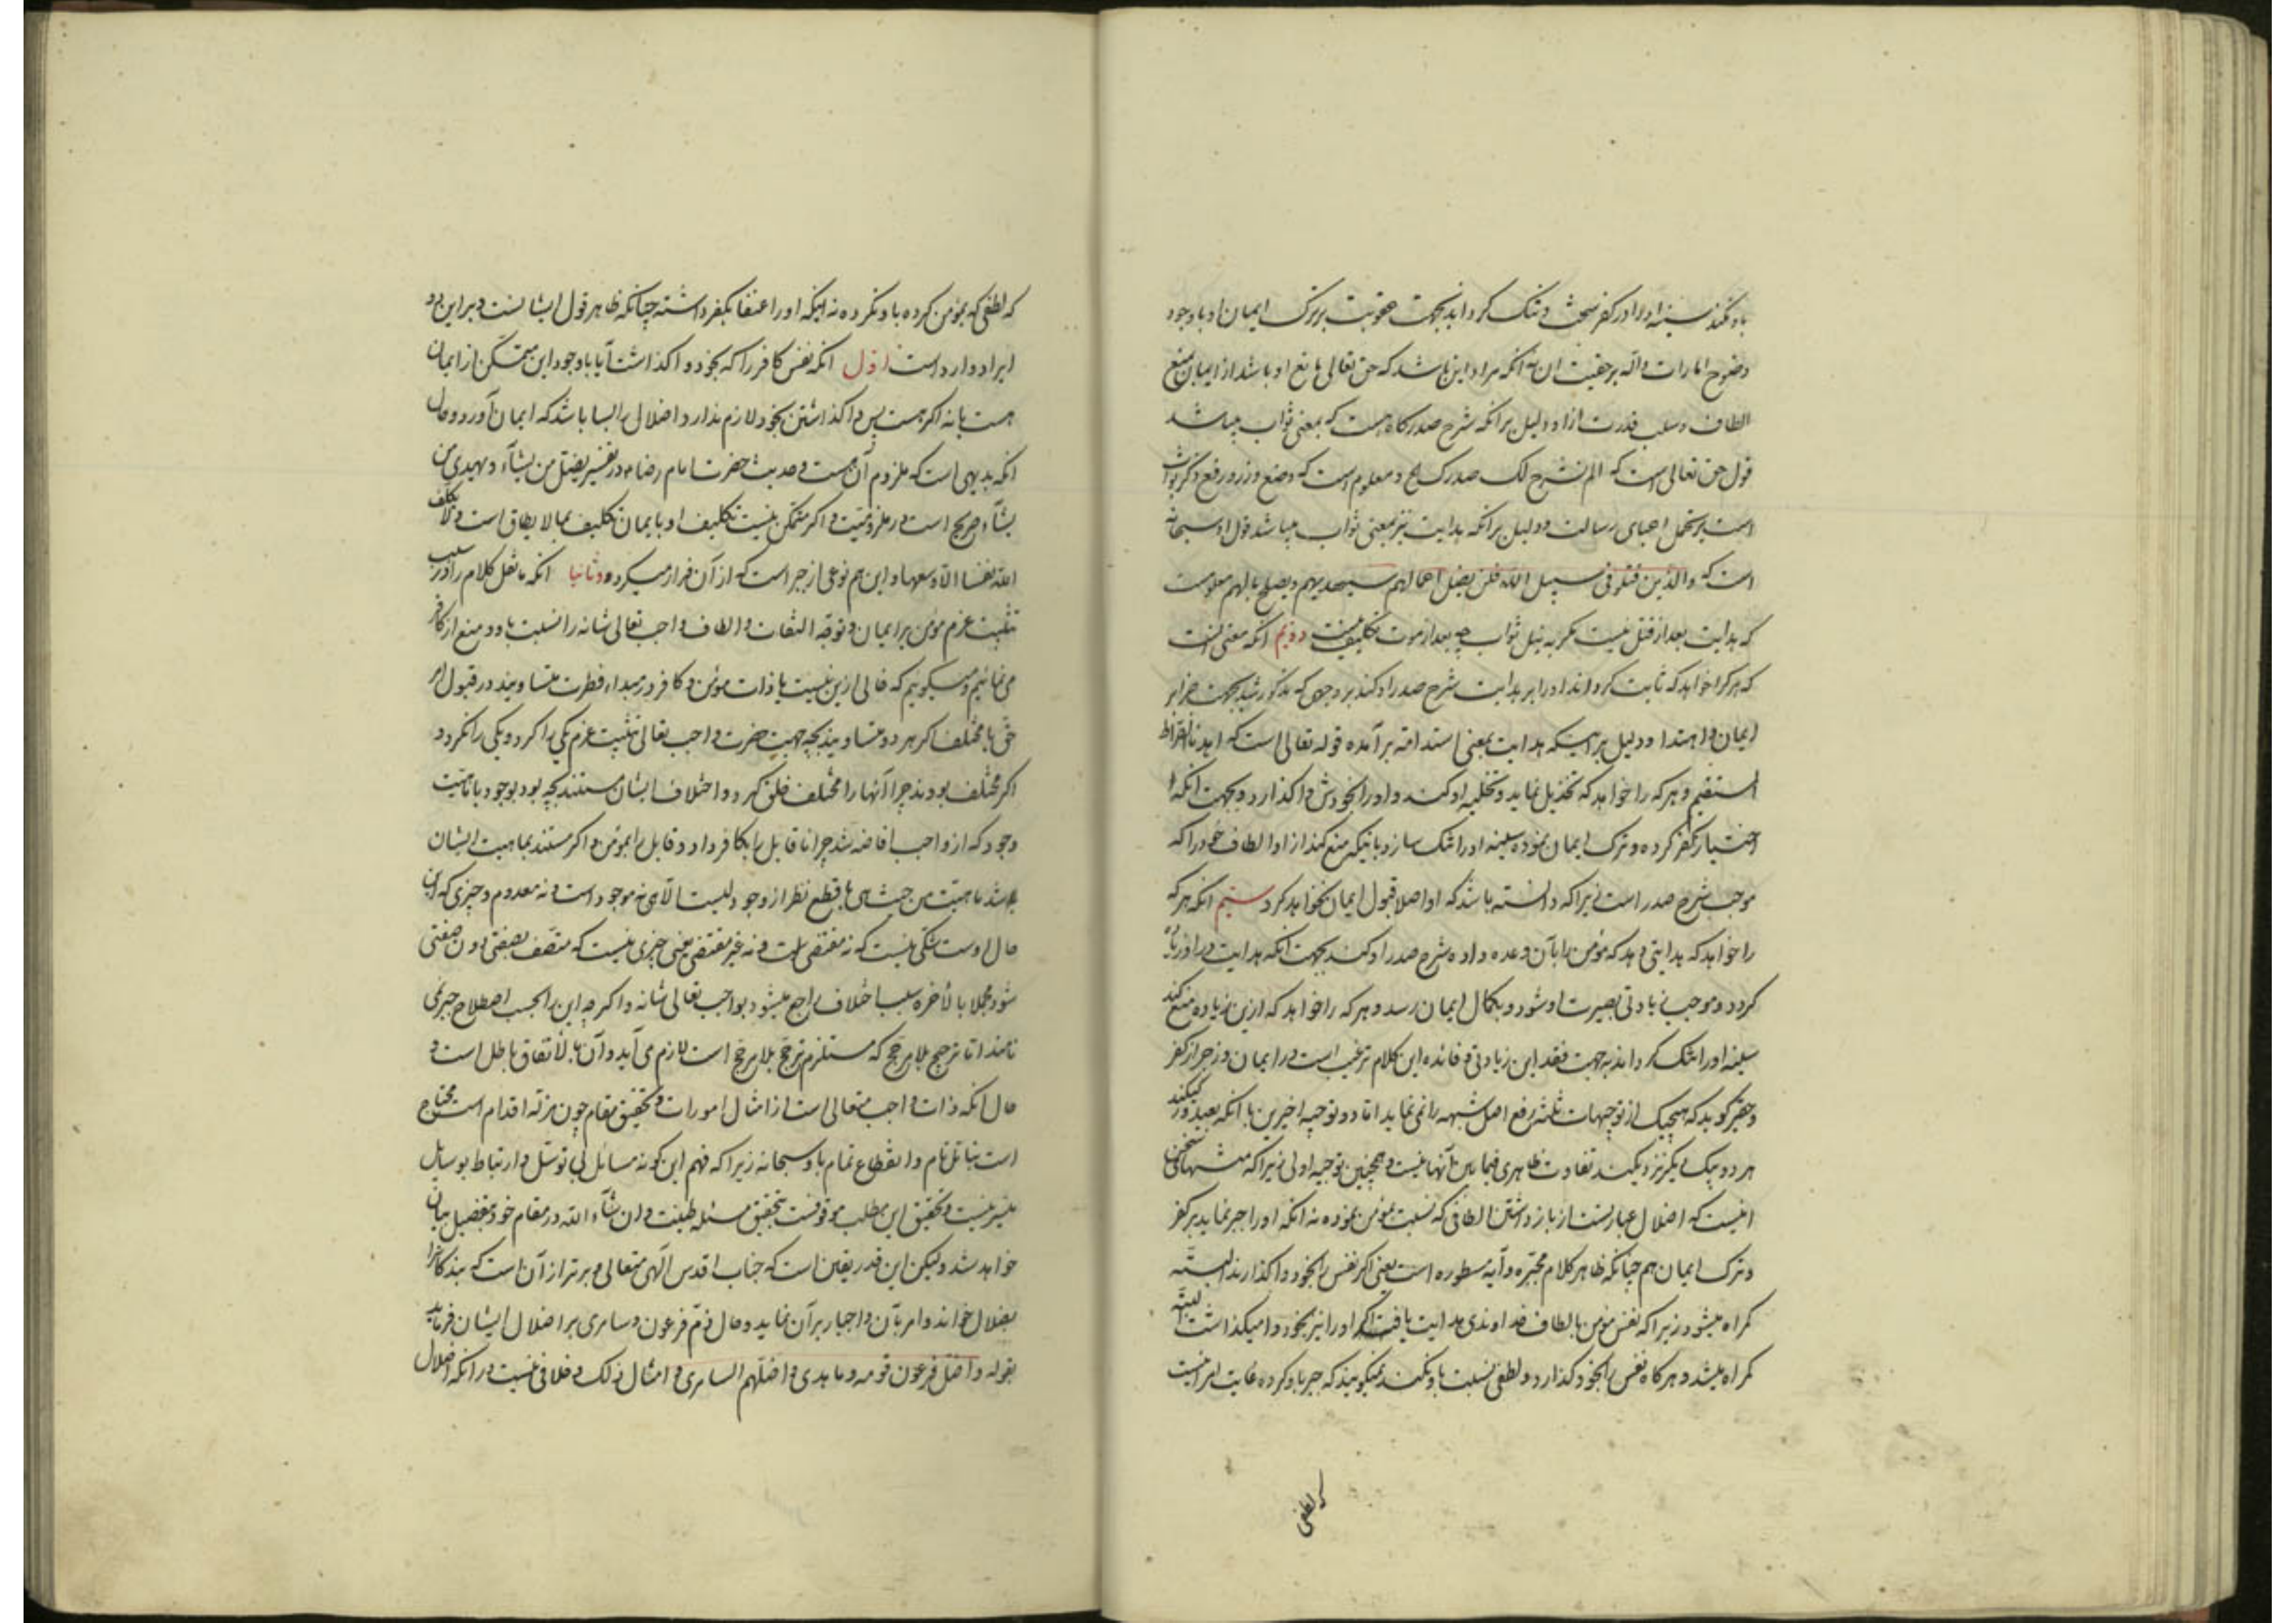 باو نکند سینه او را در کفر سخت و تنک کرداند بجهت عقوبت بر ترک ایمان او با وجود
وضوح امارات داله بر حقیت ان نه انکه مراد این باشد که حق تعالی مانع او باشد از ایمان بمنع
الطاف و سلب قدرت از او و دلیل بر انکه شرح صدر کاه هست که بمعنی ثواب میباشد
قول حق تعالی است که الم نشرح لک صدرک الخ و معلوم است که وضع وزر و رفع ذکر ثواب
است بر تحمل اعبای رسالت و دلیل بر انکه هدایت نیز بمعنی ثواب میباشد قول او سبحانه
است که والذین قتلو فی سبیل الله فلن یضل اعمالهم سیهدیهم و یصلح بالهم معلومست
که هدایت بعد از قتل نیست مکر به نیل ثواب چه بعد از موت تکلیف نیست دویم انکه معنی انست
که هر کرا خواهد که ثابت کرداند او را بر هدایت شرح صدر او کند بر وجهی که مذکور شد بجهت جزا بر
ایمان و اهتدا و دلیل بر اینکه هدایت بمعنی استدامه بر آمده قوله تعالی است که اهدنا الصراط
المستقیم و هر که را خواهد که تخذیل نماید و تخلیه او کند و او را بخودش واکذارد و بجهت انکه
اختیار کفر کرده و ترک ایمان نموده سینه او را تنک سازد باینکه منع کند از او الطاف خود را که
موجب شرح صدر است زیرا که دانسته باشد که او اصلا قبول ایمان نخواهد کرد سیّم انکه هر که
را خواهد که هدایتی دهد که مؤمن را بآن وعده داده شرح صدر او کند بجهت انکه هدایت در او زیاد
کردد و موجب زیادتی بصیرت او شود و بکمال ایمان رسد و هر که را خواهد که ازین زیاده منع کند
سینه او را تنک کرداند به جهت فقد این زیادتی و فائده این کلام ترغیب است در ایمان و زجر از کفر
و حقیر کوید که هیچیک از توجیهات ثلثه رفع اصل شبهه را نمی نماید اما دو توجیه اخیرین با انکه بعید
هر دو بیک دیکر نزدیکند تفاوت ظاهری فیما بین آنها نیست و همچنین توجیه اولی زیرا که منتهای سخن
اینست که اضلال عبارتست از باز داشتن الطافی که نسبت بمؤمن نموده نه انکه او را جبر نماید بر کفر
و ترک ایمان هم چنانکه ظاهر کلام مجبّره و آیه مسطوره است یعنی اکر نفس را بخود واکذارند البته
کمراه میشود زیرا که نفس مؤمن بالطاف خداوندی هدایت یافت اکر او را نیز بخود وامیکذاشت البته
کمراه میشد و هر کاه نفس را بخود کذارد و لطفی نسبت باو نکند نمیکویند که جبر باو کرده غایت امر اینست
که لطفی
که لطفی که بمؤمن کرده باو نکرده نه اینکه او را اعتقاد بکفر داشته چنانکه ظاهر قول ایشانست و بر این دو
ایراد وارد است اول انکه نفس کافر را که بخود واکذاشت آیا با وجود این متمکّن از ایمان
هست یا نه اکر هست پس واکذاشتن بخود لازم ندارد اضلال را بسا باشد که ایمان آورد و حال
انکه بدیهی است که ملزوم آن هست و حدیث حضرت امام رضا ع در تفسیر یضل من یشآء و یهدی من
یشآء صریح است در ملزومیّت و اکر متمکّن نیست تکلیف او بایمان تکلیف بما لا یطاق است و لا یکلف
الله نفسا الا وسعها و این هم نوعی از جبر است که از آن فرار میکرد و ثانیا انکه ما نقل کلام را در سبب
تثبیت عزم مؤمن بر ایمان و توجّه التفات و الطاف واجب تعالی شانه را نسبت باو و منع از کافر
می نمائیم و میکوییم که خالی ازین نیست یا ذات مؤمن و کافر در مبداء فطرت متساویند در قبول امر
حق یا مختلف اکر هر دو متساویند بچه جهت حضرت واجب تعالی تثبیت عزم یکی را کرد و یکی را نکرد و
اکر مختلف بودند چرا آنها را مختلف خلق کرد و اختلاف ایشان مستند بچه بود بوجود یا ماهیّت
وجود که از واجب افاضه شد چرا ناقابل را بکافر داد و قابل را بمؤمن و اکر مستند بماهیت ایشان
باشد ماهیّت من حیث هی با قطع نظر از وجود لیست الّا هی نه موجود است و نه معدوم و چیزی که این
حال اوست شکی نیست که نه مقتضی است و نه غیر مقتضی یعنی چیزی نیست که متّصف بصفتی دون صفتی
شود مجملا بالاخره سبب اختلاف راجع میشود بواجب تعالی شانه و اکر چه این را بحسب اصطلاح جبر نمی
نامند اما ترجیح بلا مرجّح که مستلزم ترجّح بلا مرجّح است لازم می آید و آن بالاتفاق باطل است و
حال انکه ذات واجب متعالی است از امثال امورات و تحقیق مقام چون مزله اقدام است محتاج
است بتامّل تام و انقطاع تمام باو سبحانه زیرا که فهم این کونه مسائل بی توسّل و ارتباط بوسایل
میسر نیست و تحقیق این مطلب موقوفست بتحقیق مسئله طینت و ان شآء الله در مقام خود بتفصیل بیان
خواهد شد و لیکن این قدر یقین است که جناب اقدس الّهی متعالی و برتر از آن است که بنده کانرا
بضلال خواند و امر بآن و اجبار بر آن نماید و حال ذمّ فرعون و سامری بر اضلال ایشان فرماید
بقوله و اضلّ فرعون قومه و ما هدی و اضلّهم السامری و امثال ذلک و خلافی نیست در انکه اضلال